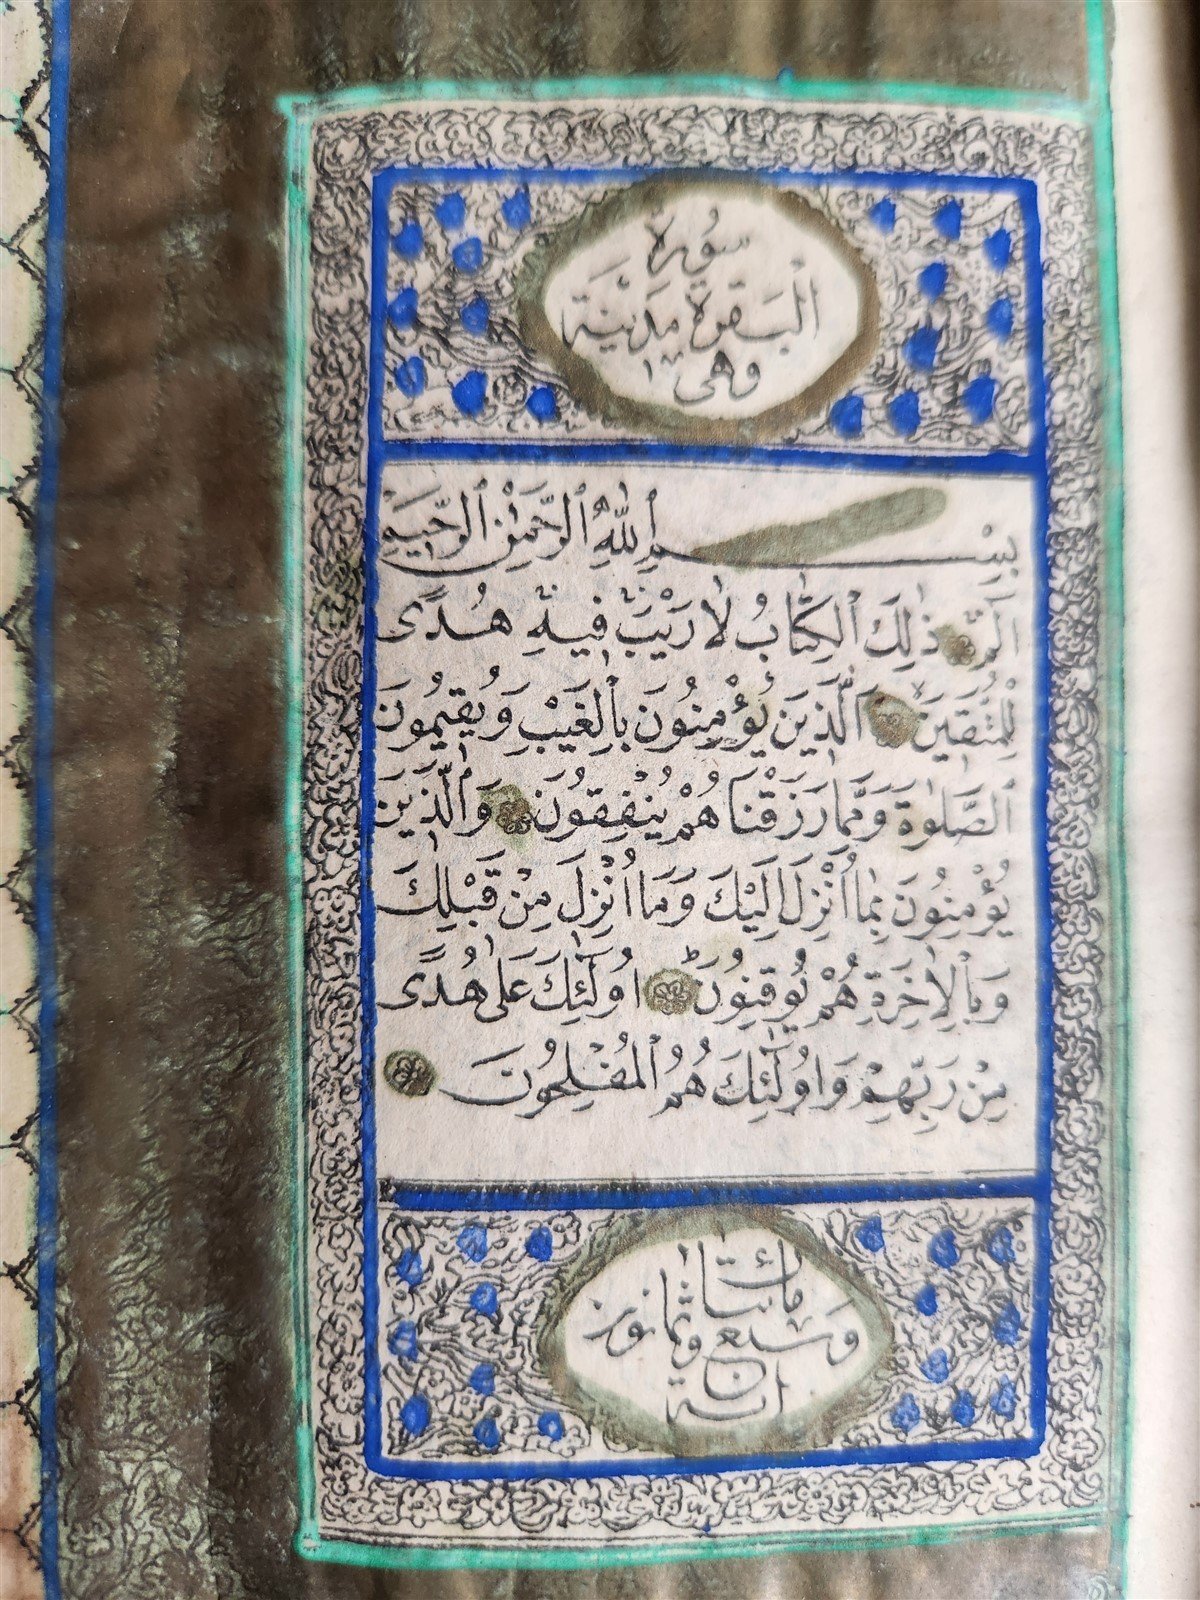 سُورَةُ
الْبَقَرَةِ مَدَنِيَّةٌ
وَهِىَ
بِسْمِ اللّٰهِ الرَّحْمٰنِ الرَّحِيمِ
الٓمٓ ذٰلِكَ الْكِتَابُ لَا رَيْبَ فِيهِ هُدًى
لِلْمُتَّقِينَ اَلَّذِينَ يُؤْمِنُونَ بِالْغَيْبِ وَيُقِيمُونَ
الصَّلٰوةَ وَمِمَّا رَزَقْنَاهُمْ يُنْفِقُونَ وَالَّذِينَ
يُؤْمِنُونَ بِمَا اُنْزِلَ اِلَيْكَ وَمَا اُنْزِلَ مِنْ قَبْلِكَ
وَبِالْاٰخِرَةِ هُمْ يُوقِنُونَ اُولٰٓئِكَ عَلٰى هُدًى
مِنْ رَبِّهِمْ وَاُولٰٓئِكَ هُمُ الْمُفْلِحُونَ
مائتا
وسبع وثمانون
اية